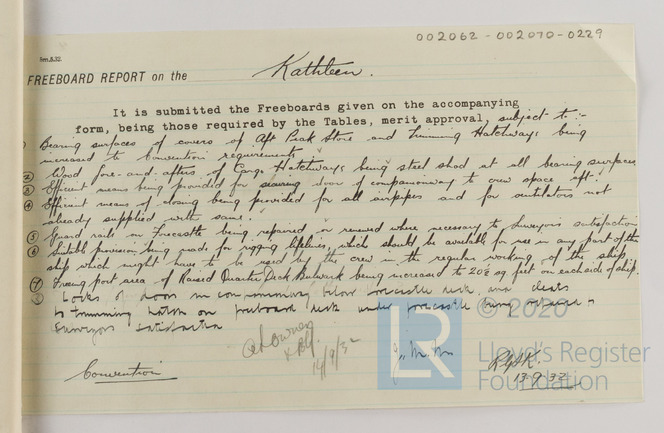 002062 - 002070 - 0229
8m.8.32.
FREEBOARD REPORT on the Kathleen.
It is submitted the Freeboards given on the accompanying
form, being those required by the Tables, merit approval, subject to :-
Bearing surfaces of covers of Aft Peak Store and Trimming Hatchways being
increased to Convention requirements
(2) Wood fore-and-afters of Cargo Hatchways being steel shod at all bearing surfaces
(3) Efficient means being provided for securing door of companionway to crew space aft.
(4) Efficient means of closing being provided for all airpipes and for ventilators not
already supplied with same.
(5) Guard rails on Forecastle being repaired or renewed where necessary to Surveyors satisfaction
(6) Suitable provision being made for rigging lifelines, which should be available for use in any part of the
ship which might have to be used by the crew in the regular working of the ship.
(7) Freeing port area of Raised Quarter Deck Bulwark being increased to 20.2 sq feet on each side of ship.
8 Locks of doors in below forecastle deck and cleats
to trimming hatch on freeboard deck under forecastle being repaired to
Surveyors satisfaction
Owners
14/9/32
Convention
13.9.32
LR © 2020
Lloyd's Register
Foundation